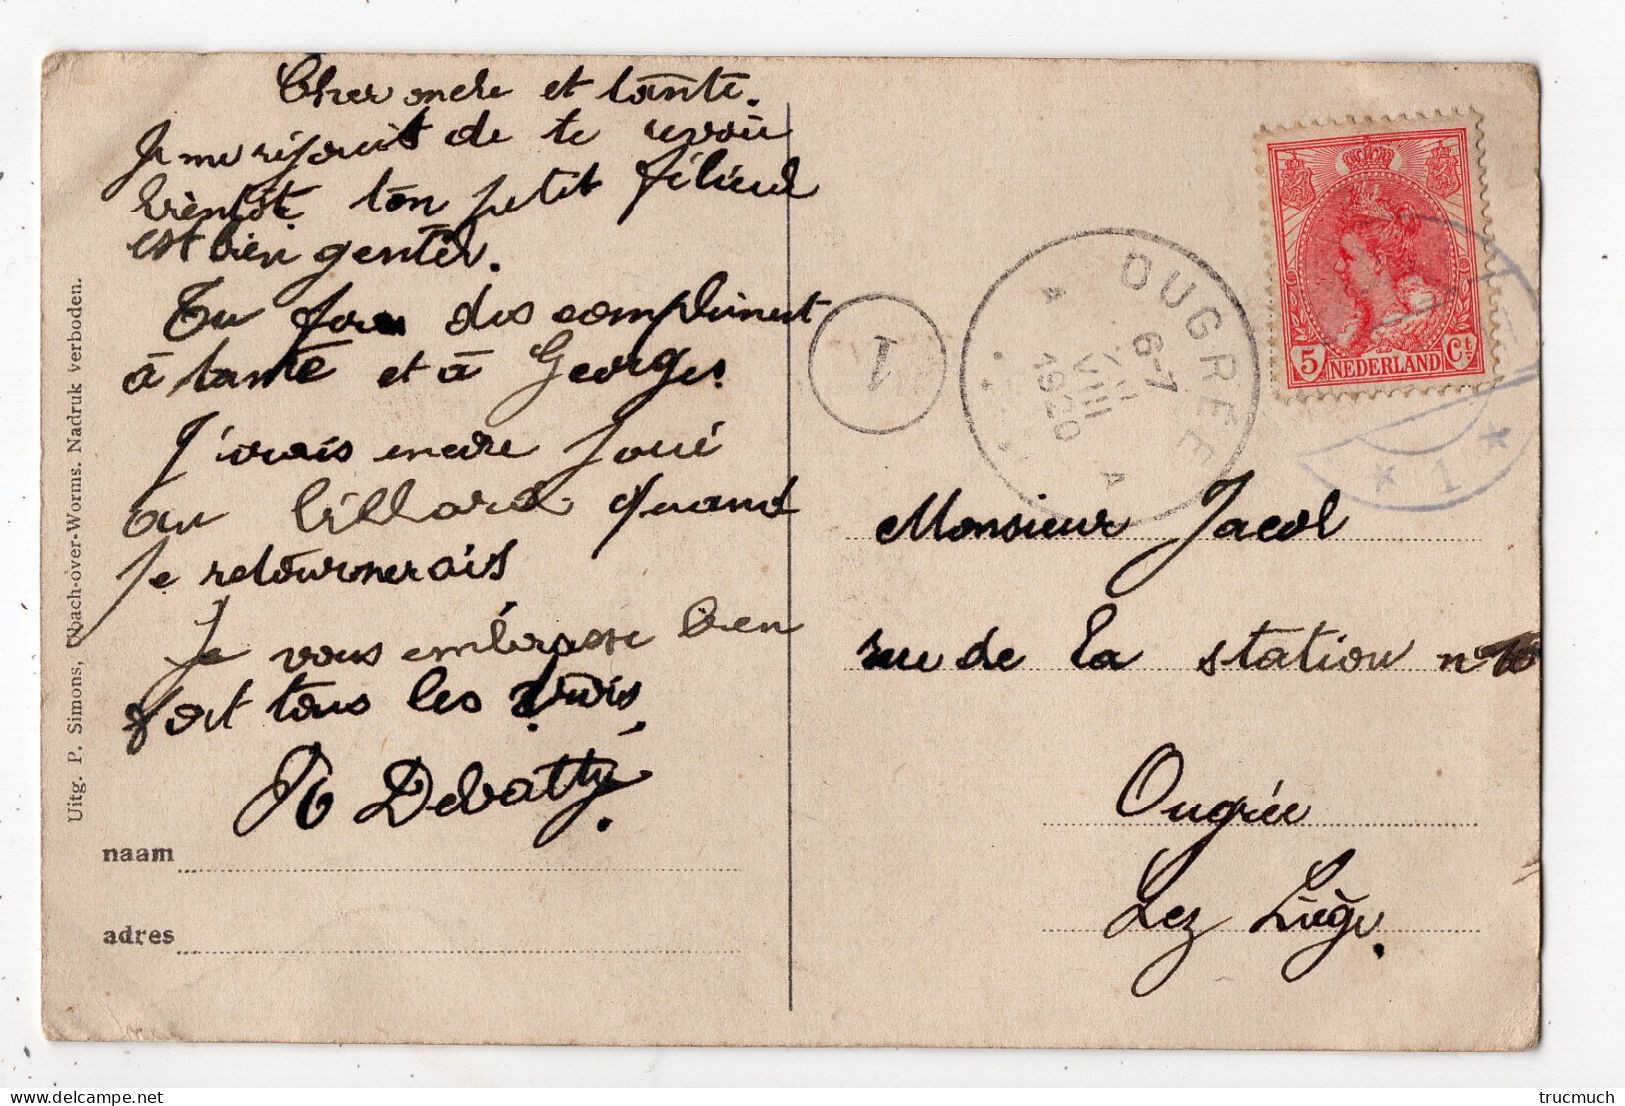 Cher oncle et tante.
Je me réjouit de te revoir
bientôt ton petit filieul
est bien gentil.
Tu feras des compliment
à tante et à Georges.
J'irais encore joué
au billard quand
je retournerais
Je vous embrasse bien
fort tous les trois.
R Debatty.
naam
adres
Uitg. P. Simons, Ubach-over-Worms. Nadruk verboden.
1
OUGREE
6-7
VIII
1920
A A
5 NEDERLAND Ct
* 1 *
Monsieur Jacob
rue de la station n° 10
Ougrée
Lez Liège.
trucmuch